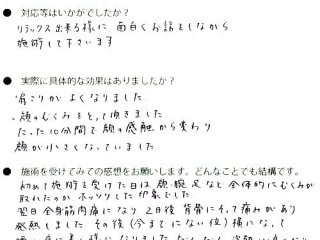 ● 対応等はいかがでしたか？
リラックス出来る様に 面白くお話をしながら
施術して下さいます
● 実際に具体的な効果はありましたか？
肩こりがよくなりました
顔のむくみをとって頂きました
たった10分間で顔の感触から変わり
顔が小さくなっていました
● 施術を受けてみての感想をお願いします。どんなことでも結構です。
初めて施術を受けた日は 顔・腕・足など全体的にむくみが
取れたのか ホッソリした印象でした
翌日 全身筋肉痛になり 2日後 背骨にそって痛みがあり
発熱しました その後（今までにない位）